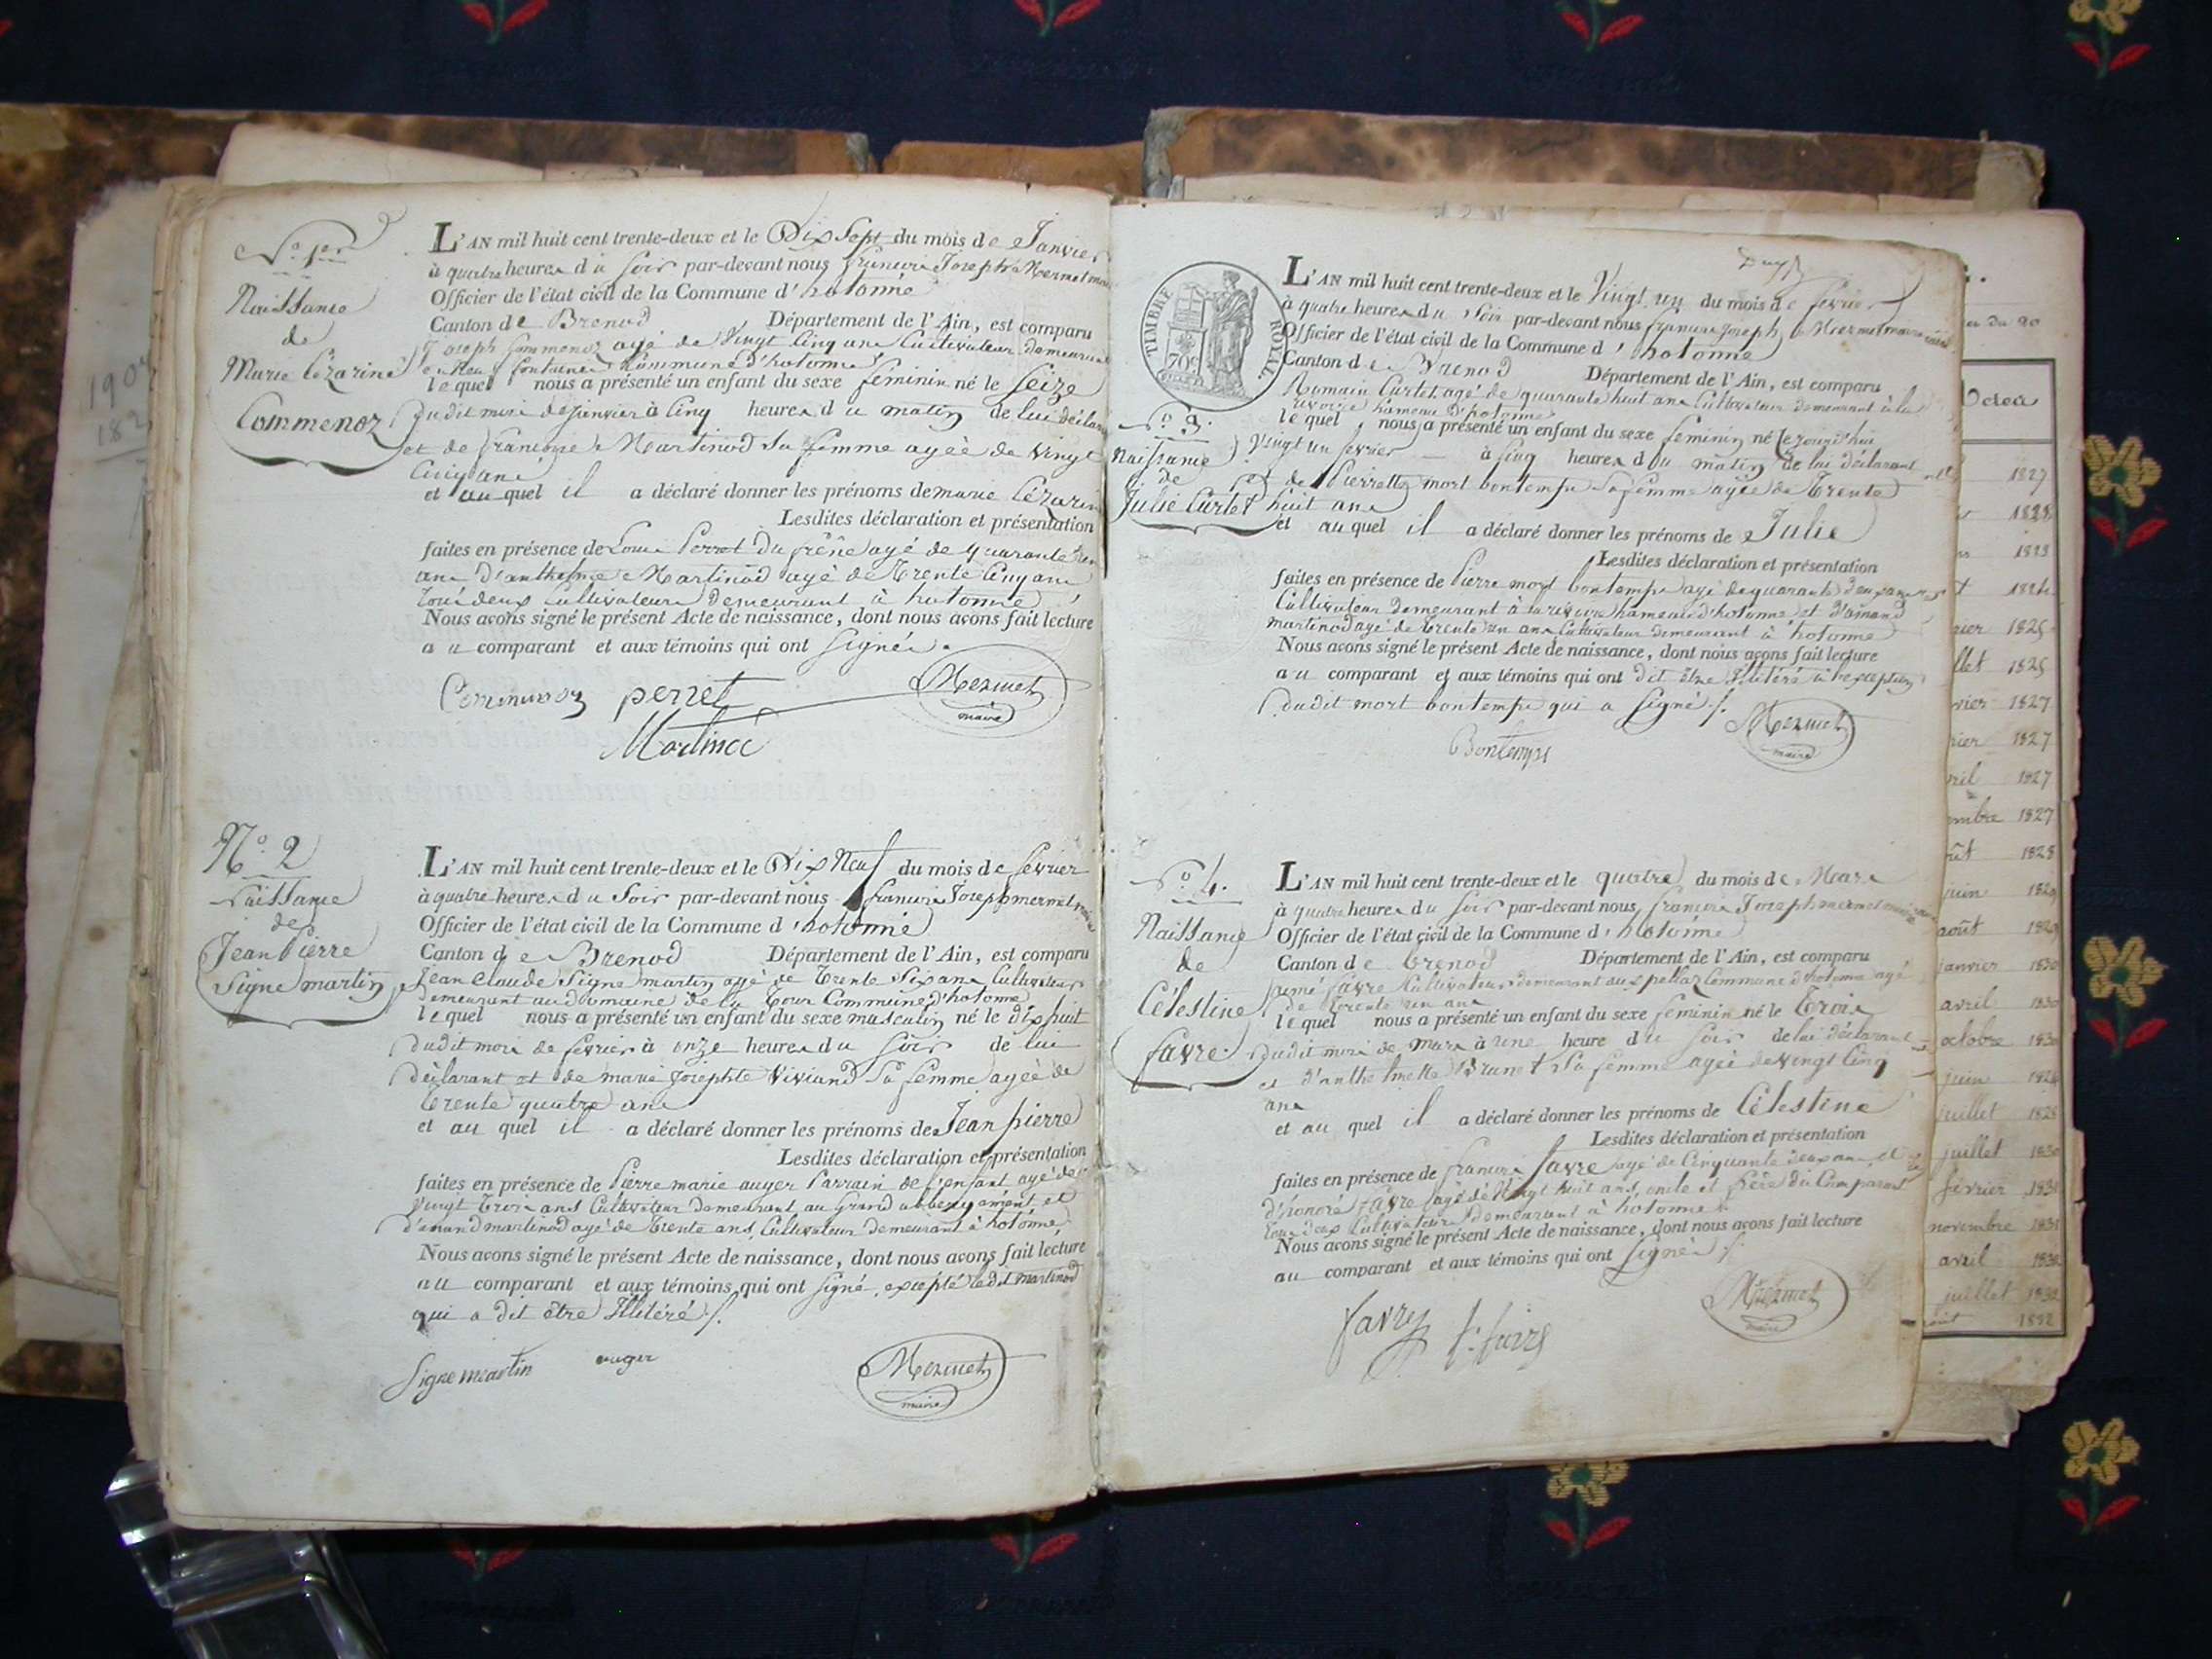 N.o 1er
Naissance
de
Marie Cézarine
Commenoz
L'AN mil huit cent trente-deux et le Dix Sept du mois de Janvier
à quatre heures du soir par-devant nous françois Joseph Mermet maire
Officier de l'état civil de la Commune d'hotonne
Canton de Brenod Département de l'Ain, est comparu
Joseph Commenoz agé de Vingt Cinq ans Cultivateur demeurant
fontaine Commune d'hotonne
lequel nous a présenté un enfant du sexe feminin né le Seize
dudit mois de Janvier à Cinq heures du matin de lui déclarant
et de françoise Martinod Sa femme agée de Vingt
Cinq ans
et au quel il a déclaré donner les prénoms de marie Cézarine
Lesdites déclaration et présentation
faites en présence de Louis Perret Du frêne agé de quarante un
ans d'anthelme Martinod agé de Trente Cinq ans
Tous deux Cultivateurs demeurant à hotonne
Nous avons signé le présent Acte de naissance, dont nous avons fait lecture
au comparant et aux témoins qui ont Signés.
Commenoz perret Mermet
maire
Martinod
N.o 2
Naissance
de
Jean Pierre
Signe martin
L'AN mil huit cent trente-deux et le Dix Neuf du mois de fevrier
à quatre heures du Soir par-devant nous françois Joseph mermet maire
Officier de l'état civil de la Commune d'hotonne
Canton de Brenod Département de l'Ain, est comparu
Jean Claude Signe martin agé de Trente Six ans Cultivateur
demeurant au domaine de la Tour Commune d'hotonne
lequel nous a présenté un enfant du sexe masculin né le dix huit
dudit mois de fevrier à onze heures du soir de lui
déclarant et de marie Josephte Viviand Sa femme agée de
Trente quatre ans
et au quel il a déclaré donner les prénoms de Jean pierre
Lesdites déclaration et présentation
faites en présence de Pierre marie auger Parrain de l'enfant agé de
Vingt Trois ans Cultivateur demeurant au Grand abbergement et
d'amand martinod agé de Trente ans, Cultivateur demeurant à hotonne,
Nous avons signé le présent Acte de naissance, dont nous avons fait lecture
au comparant et aux témoins qui ont signé, excepté ledit martinod
qui a dit être Illitéré /.
Signe martin auger Mermet
maire
TIMBRE ROYAL
70c
N.o 3.
Naissance
de
Julie Curtet
L'AN mil huit cent trente-deux et le Vingt un du mois de fevrier
à quatre heures du Soir par-devant nous françois Joseph Mermet maire
Officier de l'état civil de la Commune d'hotonne
Canton de Brenod Département de l'Ain, est comparu
Romain Curtet agé de quarante huit ans Cultivateur demeurant à la
rivoire hameau d'hotonne
lequel nous a présenté un enfant du sexe feminin né Cejourd'hui
Vingt un fevrier à Cinq heures du matin de lui déclarant
et de Pierrette mort bontemps Sa femme agée de Trente
huit ans
et au quel il a déclaré donner les prénoms de Julie
Lesdites déclaration et présentation
faites en présence de Pierre mort bontemps agé de quarante deux ans
Cultivateur demeurant à la rivoire hameau d'hotonne et d'amand
martinod agé de Trente un ans Cultivateur demeurant à hotonne
Nous avons signé le présent Acte de naissance, dont nous avons fait lecture
au comparant et aux témoins qui ont dit être Illitérés à l'exception
dudit mort bontemps qui a Signé /.
Bontemps Mermet
maire
N.o 4.
Naissance
de
Célestine
favre.
L'AN mil huit cent trente-deux et le quatre du mois de Mars
à quatre heures du soir par-devant nous françois Joseph mermet maire
Officier de l'état civil de la Commune d'hotonne
Canton de brenod Département de l'Ain, est comparu
favre Cultivateur demeurant au Commune d'hotonne agé
de Trente un ans
lequel nous a présenté un enfant du sexe feminin né le Trois
dudit mois de mars à une heure du soir de lui déclarant
et d'anthelmette Brunet Sa femme agée de Vingt Cinq
ans
et au quel il a déclaré donner les prénoms de Célestine
Lesdites déclaration et présentation
faites en présence de françois favre agé de Cinquante deux ans et
d'honoré favre agé de Vingt huit ans, oncle et frère du Comparant
Tous deux Cultivateurs demeurant à hotonne
Nous avons signé le présent Acte de naissance, dont nous avons fait lecture
au comparant et aux témoins qui ont Signés /.
favre Mermet
maire
1827
1828
1824
1825
juillet 1825
1827
1827
1827
1827
1828
juin
août
janvier 1830
avril 1830
octobre 1830
juin
juillet 1828
juillet 1830
février 1831
novembre 1831
avril
juillet 1832
1832